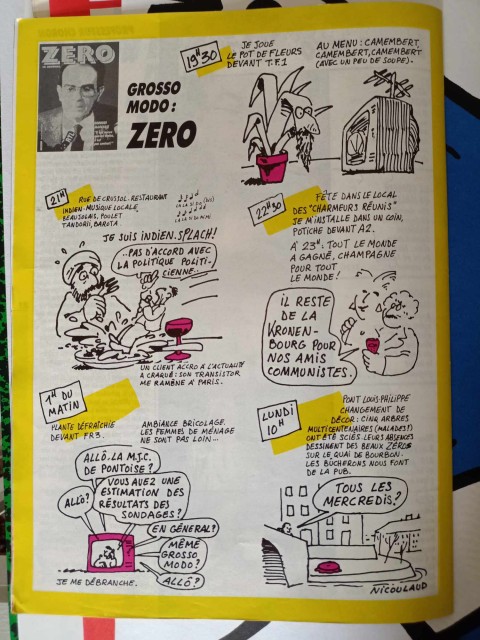 ZERO
GROSSO
MODO :
ZERO
19H30
JE JOUE
LE POT DE FLEURS
DEVANT T.F.1
AU MENU : CAMEMBERT,
CAMEMBERT, CAMEMBERT
(AVEC UN PEU DE SOUPE).
21H
RUE DE CRUSSOL. RESTAURANT
INDIEN. MUSIQUE LOCALE,
BEAUJOLAIS, POULET
TANDORII, BAROTA.
JE SUIS INDIEN. SPLACH!
..PAS D'ACCORD AVEC
LA POLITIQUE POLITI-
CIENNE..
UN CLIENT ACCRO À L'ACTUALITÉ
A CRAQUÉ : SON TRANSISTOR
ME RAMÈNE À PARIS.
22H30
FÊTE DANS LE LOCAL
DES "CHARMEURS RÉUNIS"
JE M'INSTALLE DANS UN COIN,
POTICHE DEVANT A2.
À 23H: TOUT LE MONDE
A GAGNÉ, CHAMPAGNE
POUR TOUT
LE MONDE !
IL RESTE
DE LA
KRONEN-
BOURG POUR
NOS AMIS
COMMUNISTES.
1H DU
MATIN
PLANTE DÉFRAÎCHIE
DEVANT FR3.
AMBIANCE BRICOLAGE.
LES FEMMES DE MÉNAGE
NE SONT PAS LOIN...
ALLÔ. LA M.J.C.
DE PONTOISE ?
ALLÔ?
VOUS AVEZ UNE
ESTIMATION DES
RÉSULTATS DES
SONDAGES ?
EN GÉNÉRAL?
MÊME
GROSSO
MODO ?
ALLÔ ?
JE ME DÉBRANCHE.
LUNDI
10H
PONT LOUIS-PHILIPPE
CHANGEMENT DE
DÉCOR : CINQ ARBRES
MULTICENTENAIRES (MALADES?)
ONT ÉTÉ SCIÉS. LEURS ABSENCES
DESSINENT DES BEAUX ZÉROS
SUR LE QUAI DE BOURBON.
LES BÛCHERONS NOUS FONT
DE LA PUB.
TOUS LES
MERCREDIS ?
NICOULAUD